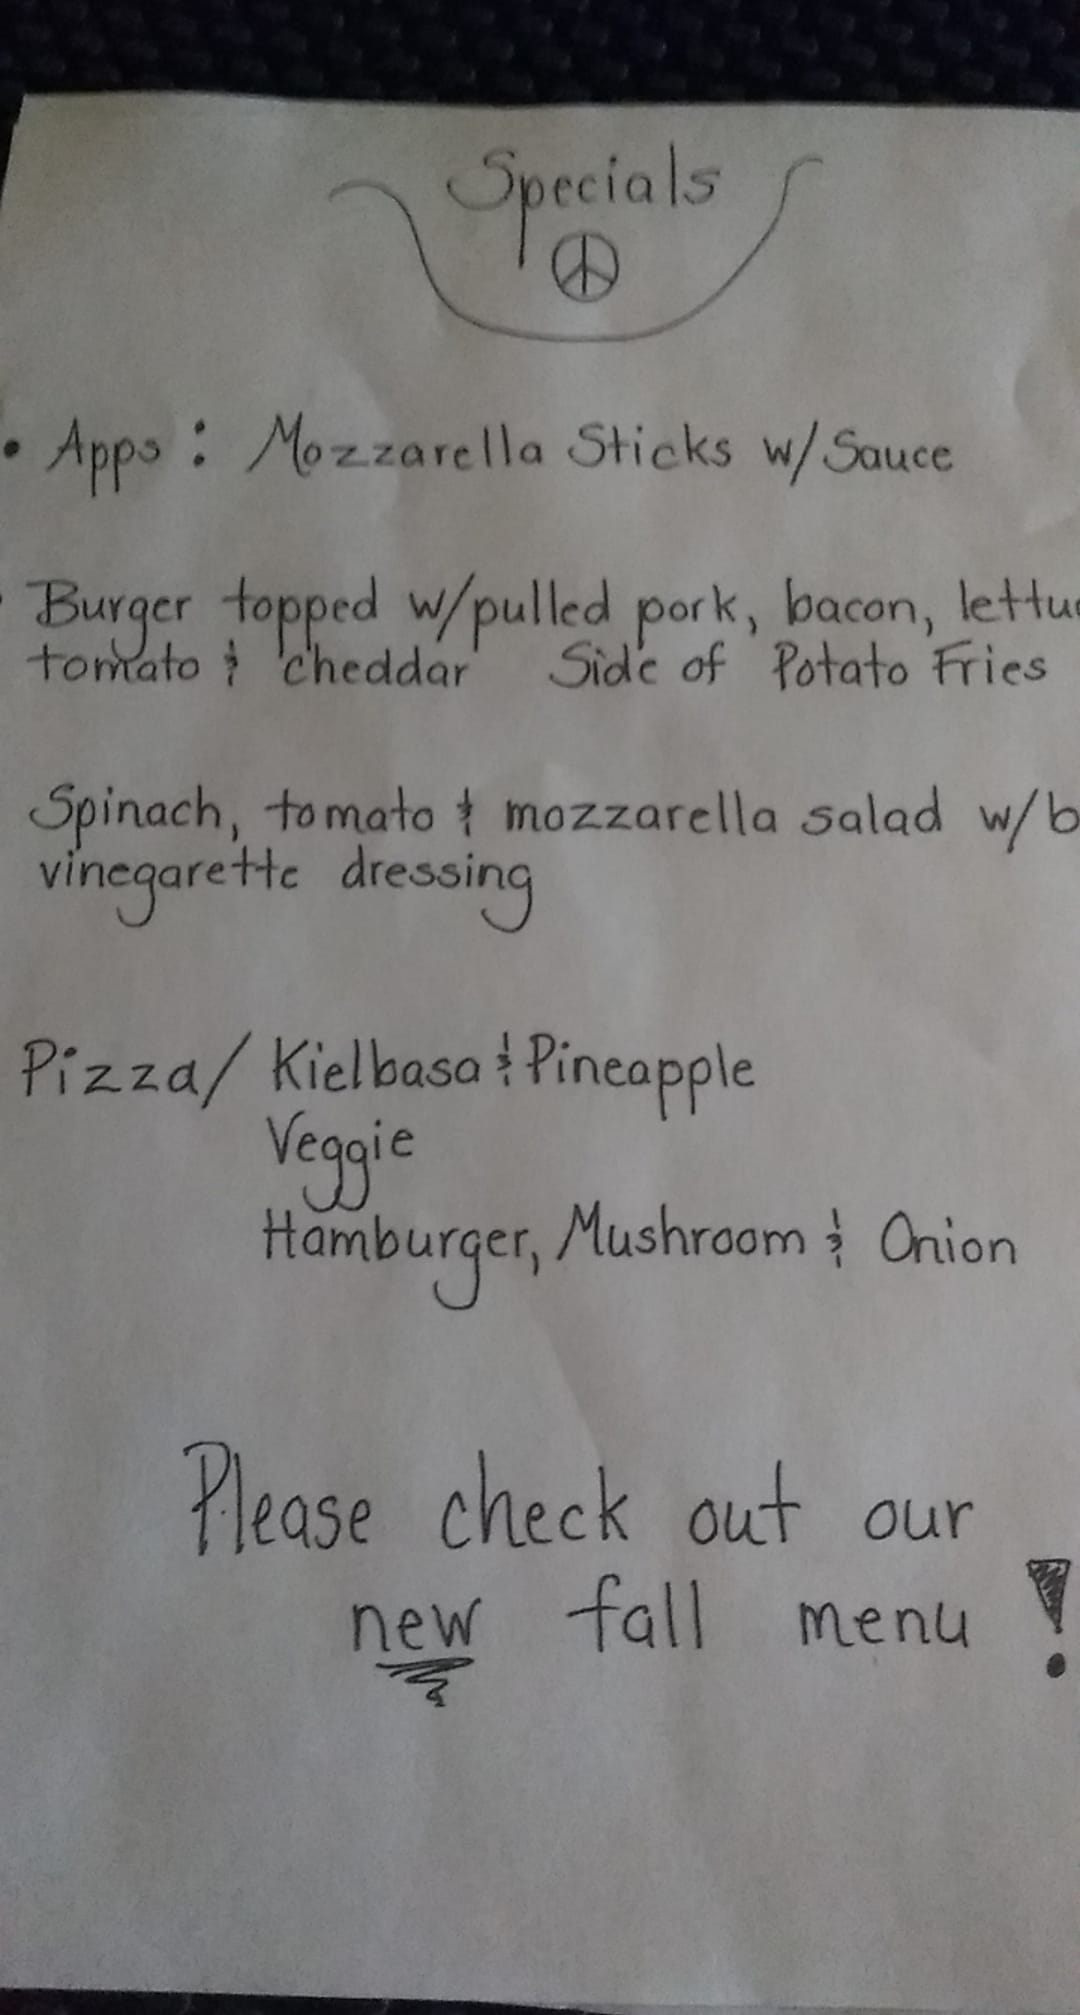 Specials
• Apps: Mozzarella Sticks w/Sauce
Burger topped w/pulled pork, bacon, lettuc
tomato & cheddar Side of Potato Fries
Spinach, tomato & mozzarella salad w/b
vinegarette dressing
Pizza/ Kielbasa & Pineapple
Veggie
Hamburger, Mushroom & Onion
Please check out our
new fall menu!